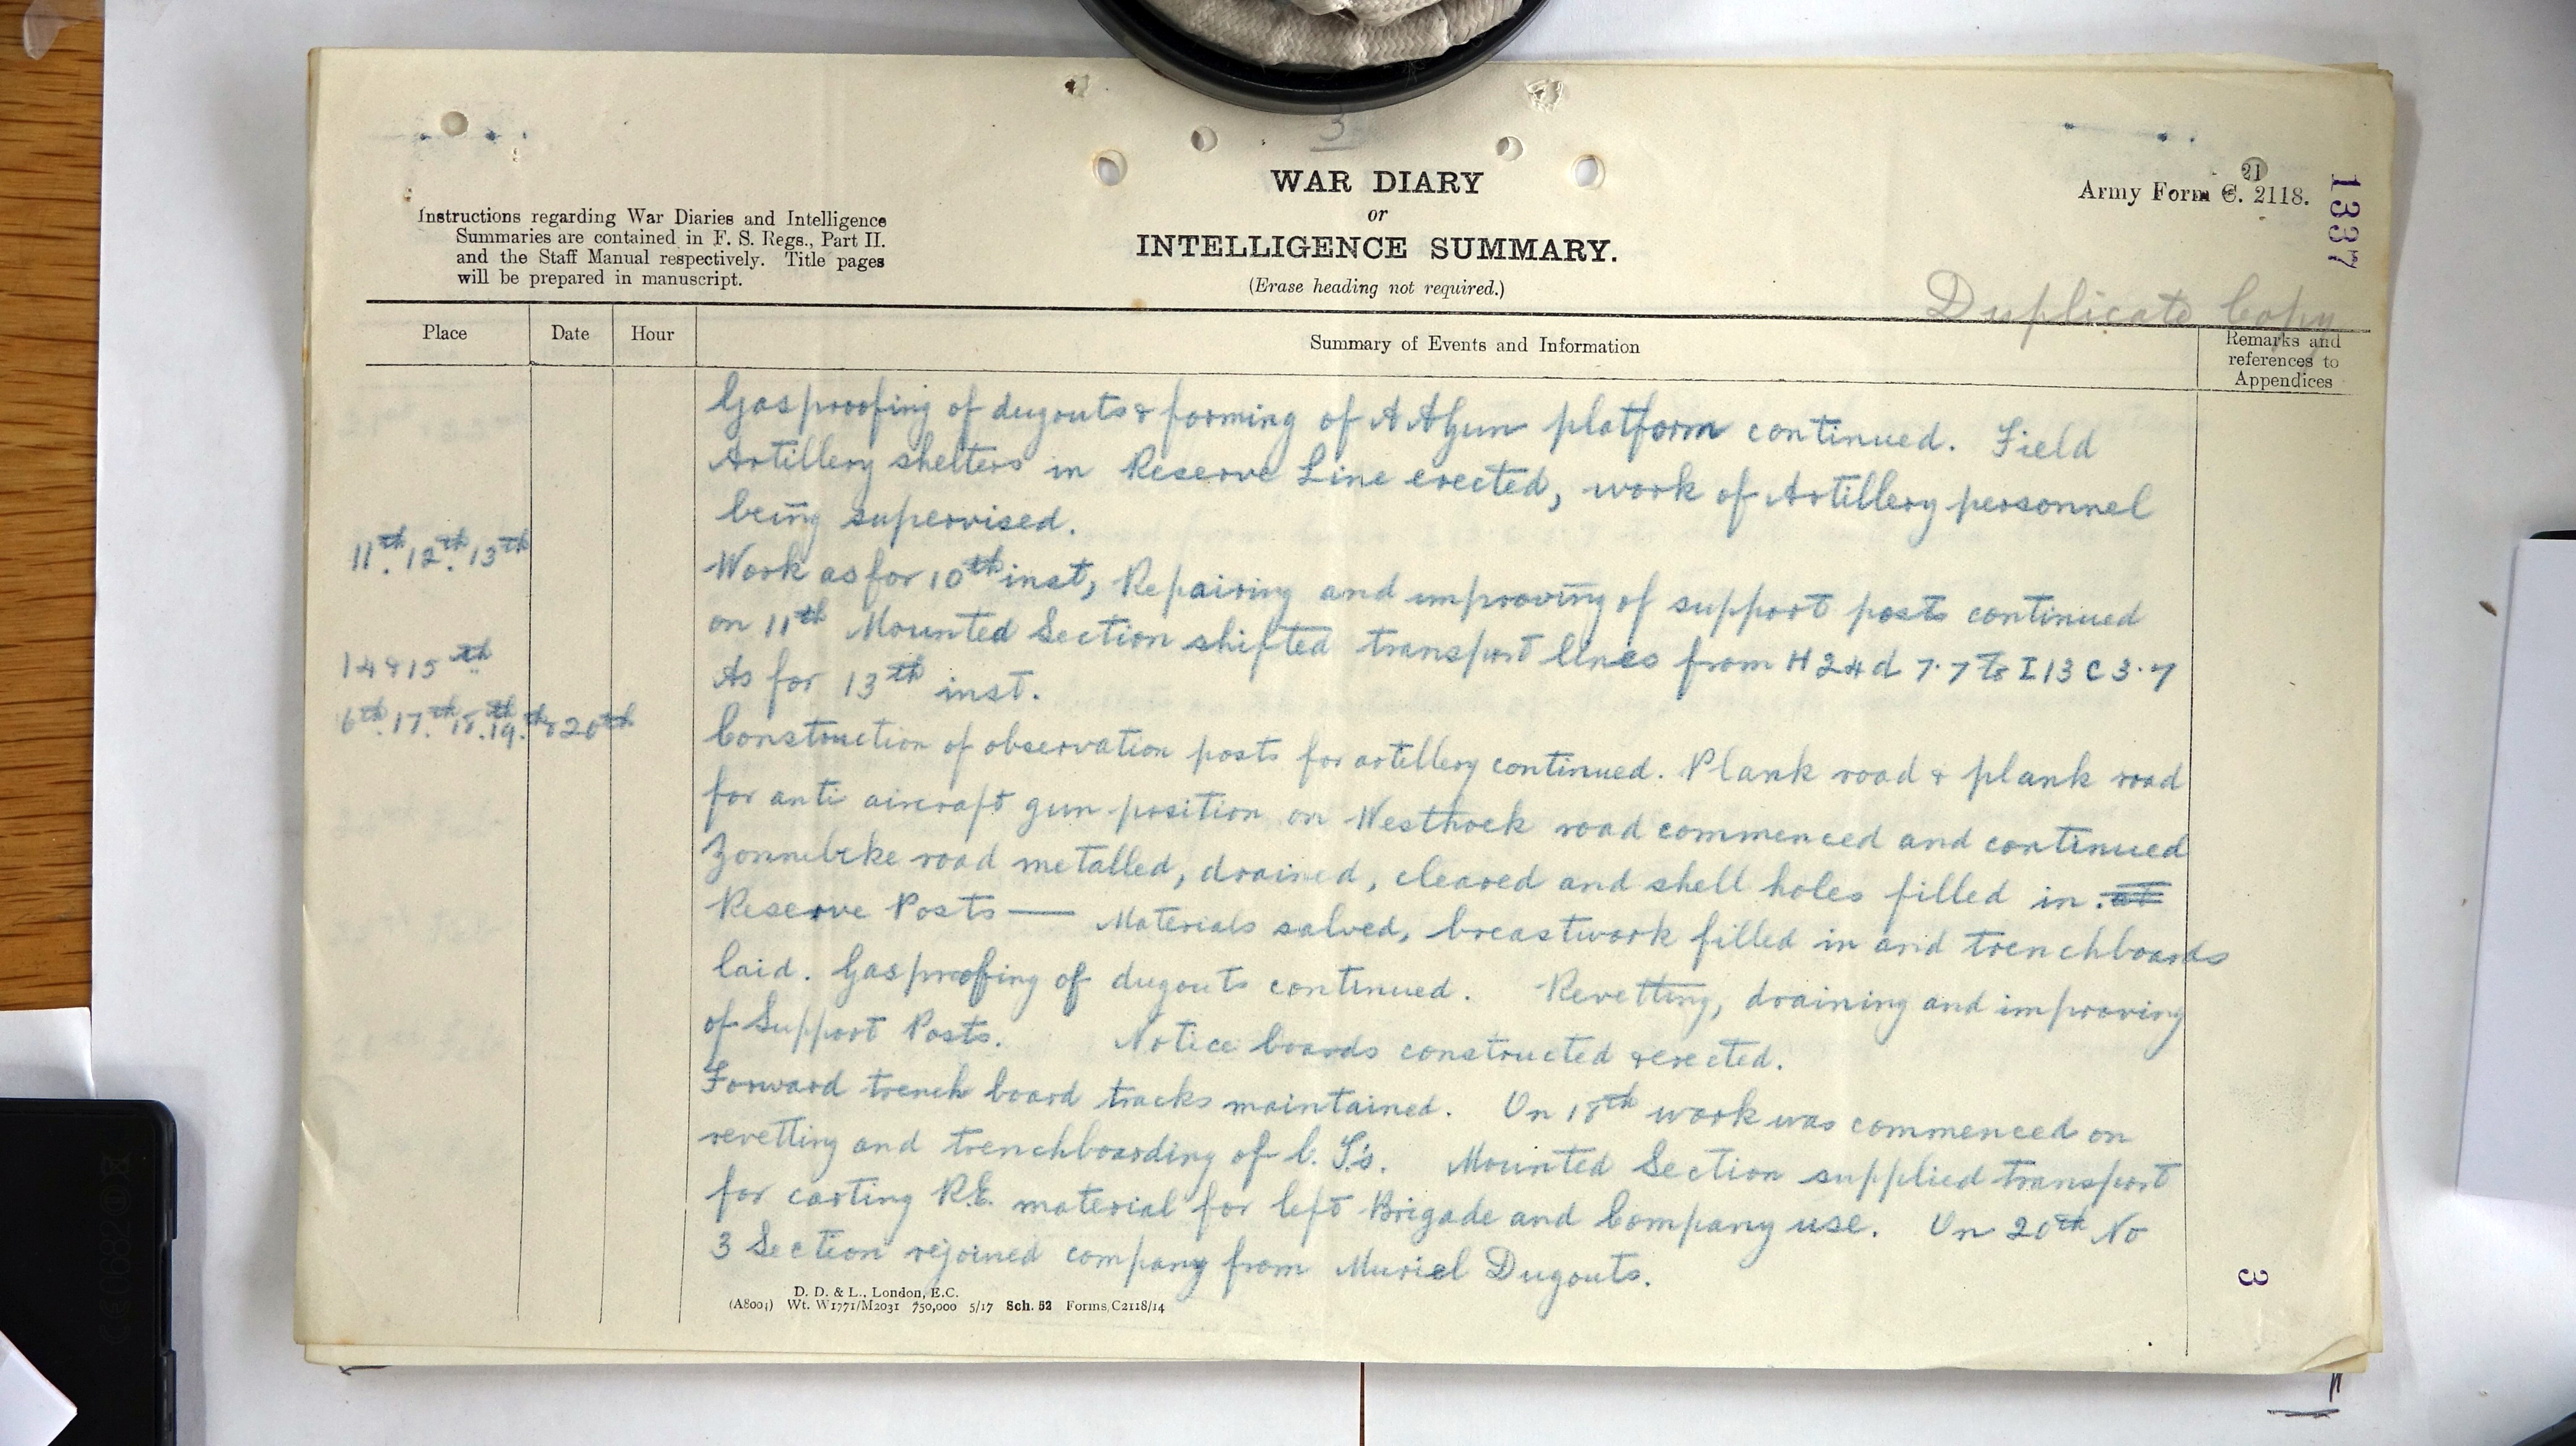 3
21
Army Form C. 2118.
1337
WAR DIARY
or
INTELLIGENCE SUMMARY.
(Erase heading not required.)
Instructions regarding War Diaries and Intelligence
Summaries are contained in F. S. Regs., Part II.
and the Staff Manual respectively. Title pages
will be prepared in manuscript.
Duplicate Copy
Place Date Hour Summary of Events and Information Remarks and
references to
Appendices
Gasproofing of dugouts & forming of A A Gun platform continued. Field
Artillery shelters in Reserve Line erected, work of Artillery personnel
being supervised.
11th. 12th. 13th Work as for 10th inst, Repairing and improving of support posts continued
on 11th Mounted Section shifted transport lines from H 24 d 7.7 to I 13 C 3.7
14 & 15th As for 13th inst.
6th. 17th. 18th. 19th & 20th Construction of observation posts for artillery continued. Plank road & plank road
for anti aircraft gun position on Westhoek road commenced and continued
Zonnebeke road metalled, drained, cleared and shell holes filled in.
Reserve Posts — Materials salved, breastwork filled in and trenchboards
laid. Gasproofing of dugouts continued. Revetting, draining and improving
of Support Posts. Notice boards constructed & erected.
Forward trench board tracks maintained. On 18th work was commenced on
revetting and trenchboarding of C. T.'s. Mounted Section supplied transport
for carting R.E. material for left Brigade and Company use. On 20th No
3 Section rejoined company from Muriel Dugouts.
3
D. D. & L., London, E.C.
(A8004) Wt. W1771/M2031 750,000 5/17 Sch. 52 Forms C2118/14